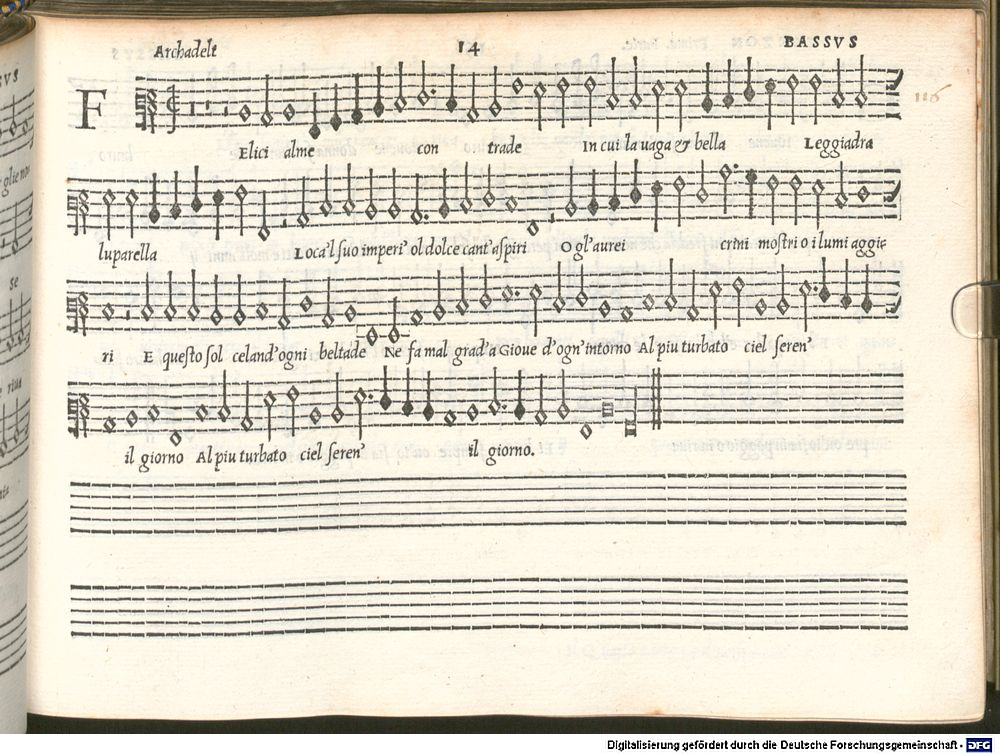 Archadelt 14 BASSVS
116
F
Elici alme con trade In cui la uaga & bella Leggiadra
luparella Loca'l suo imperi' ol dolce cant' aspiri O gl'aurei crini mostri o i lumi aggi
ri E questo sol celand'ogni beltade Ne fa mal grad'a Gioue d'ogn'intorno Al piu turbato ciel seren'
il giorno Al piu turbato ciel seren' il giorno.
SVS
glie nos
se
Digitalisierung gefördert durch die Deutsche Forschungsgemeinschaft - DFG